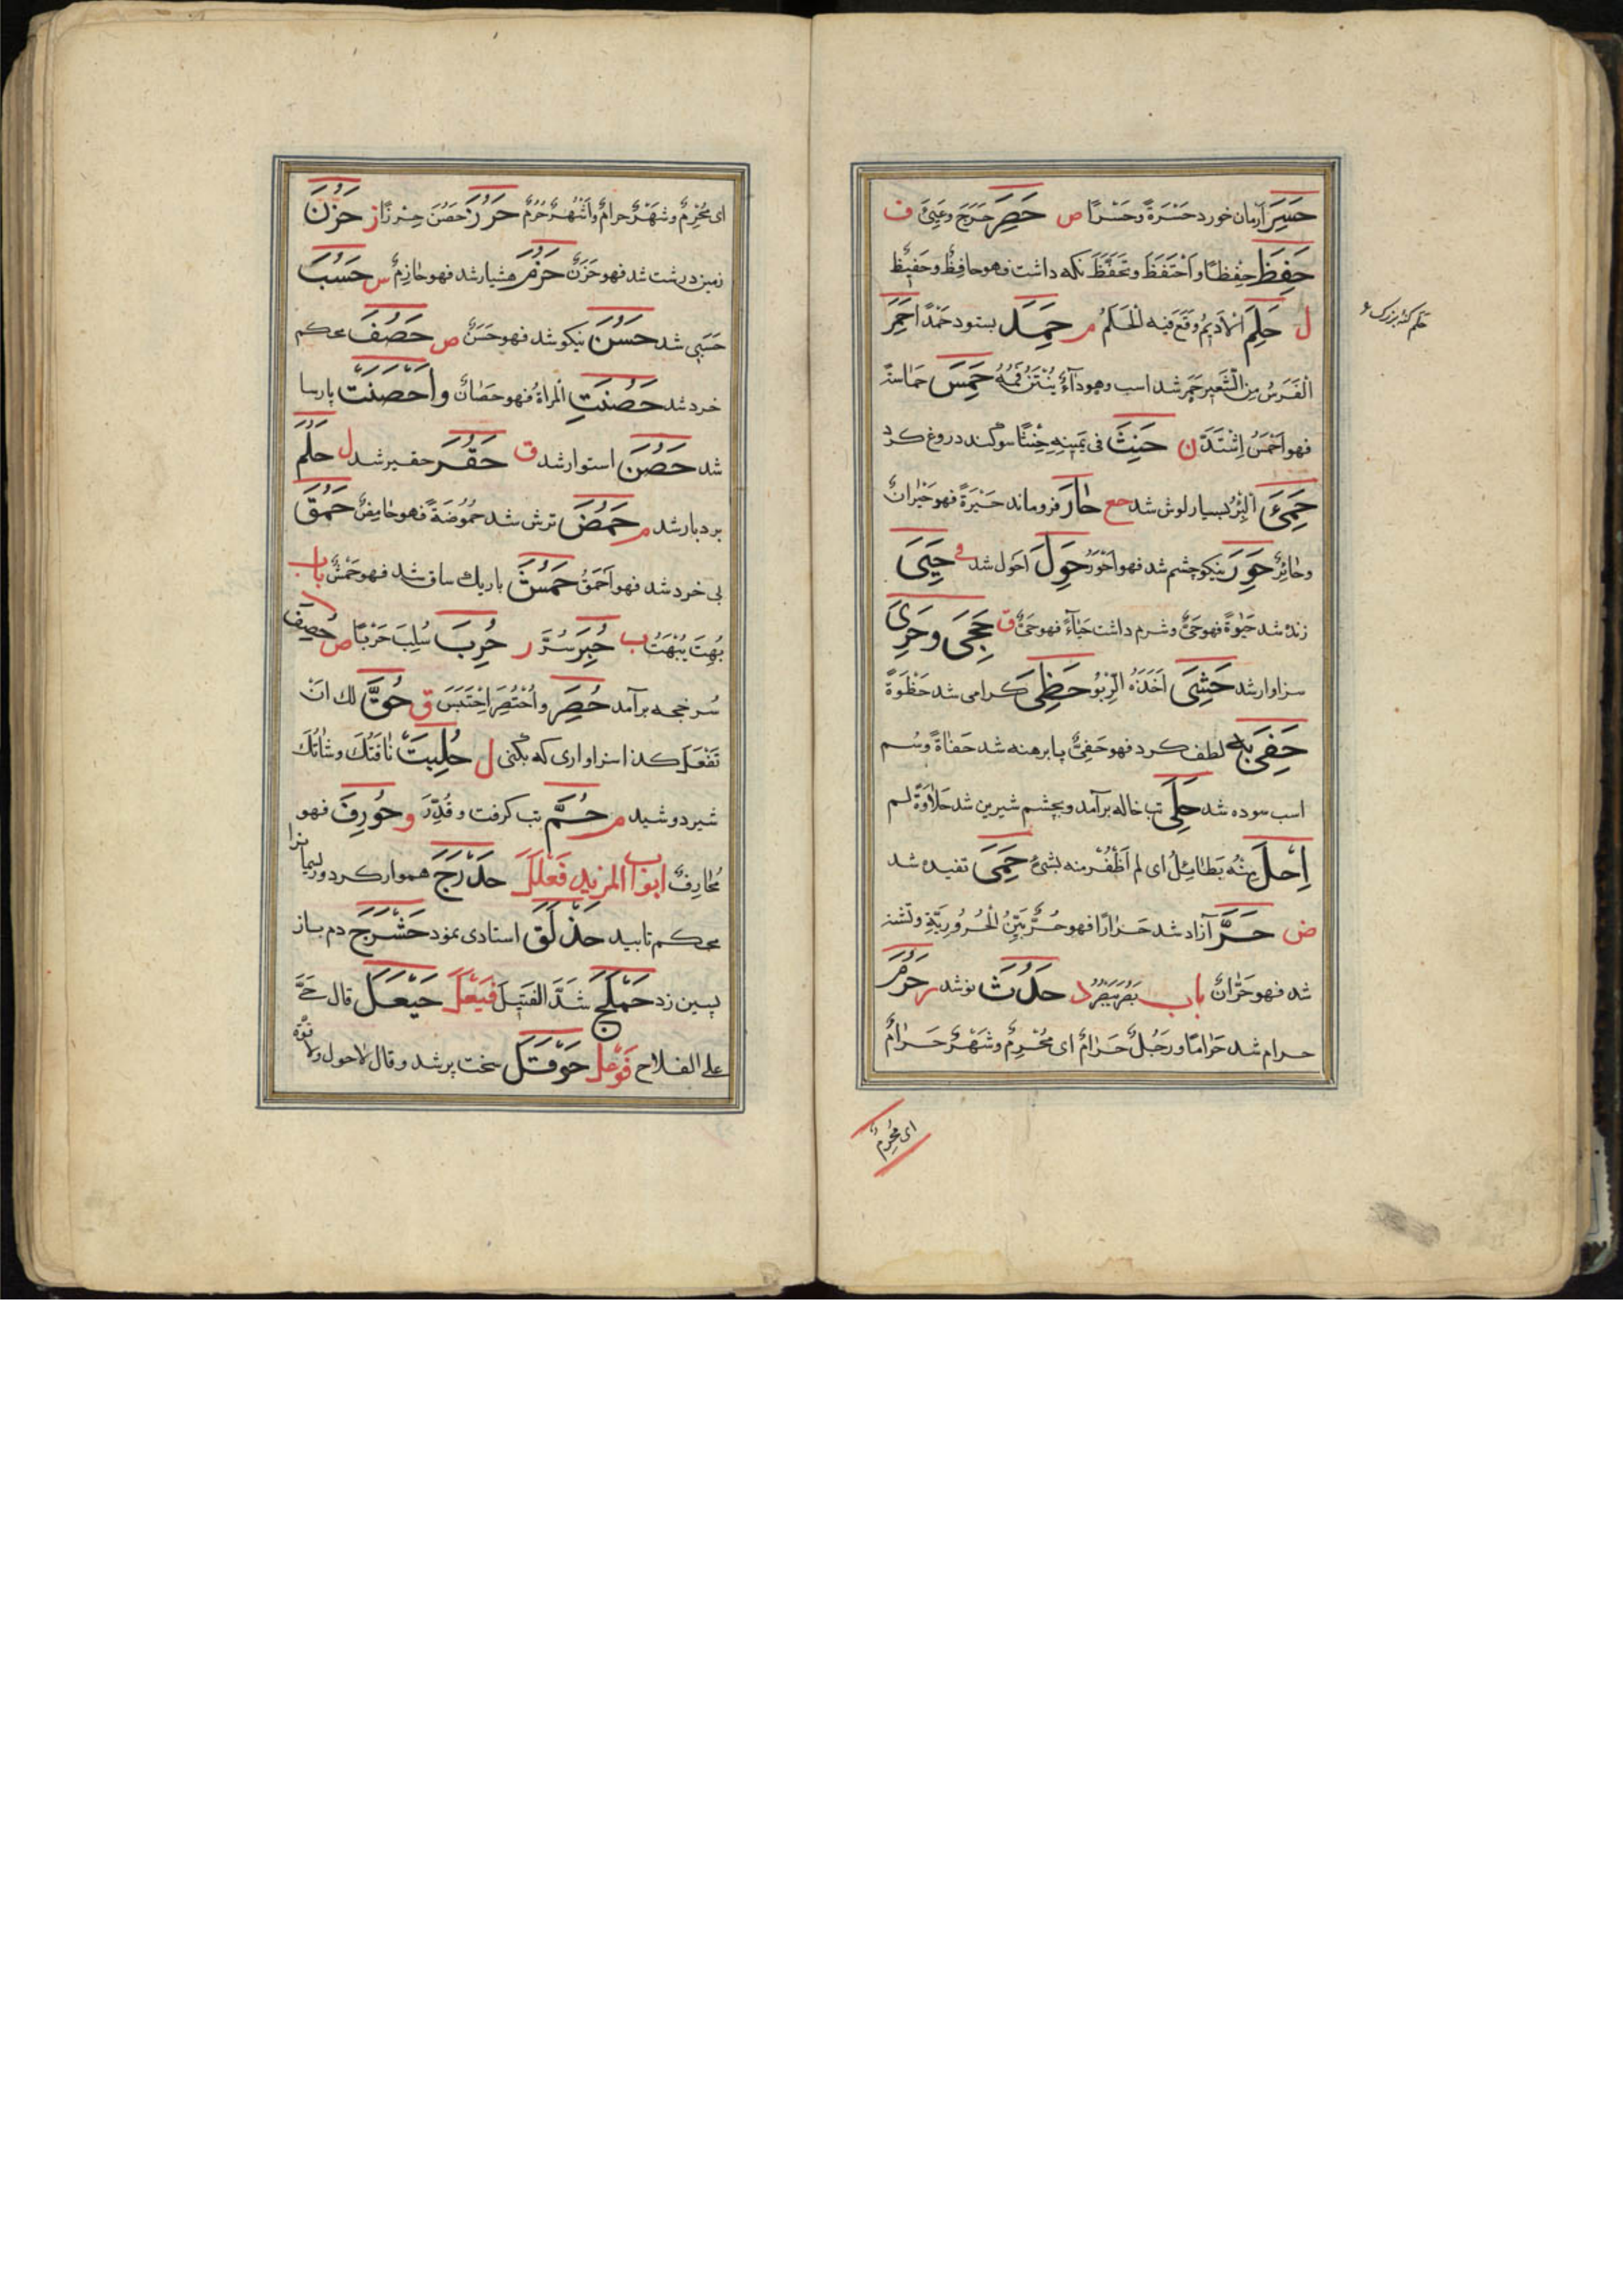 حَسِرَ ارمان خورد حَسْرَةً وحَسَرًا ص حَصِرَ حَرَجَ وعَيِىَ ف
حَفِظَ حِفْظًا واَحْتَفَظَ وتَحَفَّظَ نكه داشت فهو حافِظٌ وحَفيظٌ
ل حَلِمَ اْلاَديمُ وَقَعَ فيه اْلحَلَمُ م حَمِدَ بستود حَمْدًا حَمِرَ
حلم كنه بزرك
اْلفَرَسُ مِنَ الشَّعيرِ حَمِر شد اسب وهو دآءٌ يُنْتِنُ فَمَهُ حَمِسَ حَماسَة
فهو اَحْمَسُ اِشْتَدَّ ن حَنِثَ فى يَمينِهِ حِنْثًا سوكند دروغ كرد
حَمِئَ اْلبِئْرُ بسيار لوش شد حع حارَ فروماند حَيْرَةً فهو حَيْرانُ
وحائِرٌ حَوِرَ نيكو چشم شد فهو اَحْوَرُ حَوِلَ احول شد فى حَيِىَ
زنده شد حَيوةً فهو حَىٌّ وشرم داشت حَياءً فهو حَيِىٌّ ق حَجِىَ وحَرِىَ
سزاوار شد حَشِىَ اَخَذَهُ الرَّبْوُ حَظِىَ كرامى شد حَظْوَةً
حَفِىَ بِهِ لطف كرد فهو حَفِىٌّ پا برهنه شد حَفاةً وسُم
اسب سوده شد حَلِىَ تب خاله برآمد وبچشم شيرين شد حَلاوَةً لم
اِحْلَ مِنْهُ بَطائِلٍ اى لم اَظْفُرْ منه بشئ حَمِىَ تفيده شد
ض حَرَّ آزاد شد حَرارًا فهو حُرٌّ بَيِّنُ اْلحُرُورِيَّةِ وتشنه
شد فهو حَرّانُ باب بَصُرَ يَبْصُرُ د حَدُثَ نوشد ر حَرُمَ
حرام شد حَرامًا ورَجُلٌ حَرامٌ اى مُحْرِمٌ وشَهْرٌ حَرامٌ
اى مُحْرِمٌ
اى مُحْرِمٌ وشَهْرٌ حرامٌ واَشْهُرٌ حُرُمٌ حَرُزَ حَصُنَ حِرزًا ز حَزُنَ
زمين درشت شد فهو حَزَنٌ حَزُمَ هشيار شد فهو حازِمٌ س حَسُبَ
حَسَبى شد حَسُنَ نيكو شد فهو حَسَنٌ ص حَصُفَ محكم
خرد شد حَصُنَتِ المرأةُ فهو حَصانٌ واَحْصَنَتْ پارسا
شد حَصُنَ استوار شد ق حَقُرَ حقير شد ل حَلُمَ
بردبار شد م حَمُضَ ترش شد حُمُوضَةً فهو حامِضٌ حَمُقَ
بى خرد شد فهو اَحْمَقُ حَمُشَ باريك ساق شد فهو حَمْشٌ باب
بُهِتَ يُبْهَتُ ب حُبِرَ سُرَّ ر حُرِبَ سُلِبَ حَرْبًا ص حُصِفَ
سُرخجه برآمد حُصِرَ واُحْتُصِرَ اِحْتَبَسَ ق حُقَّ لك اَنْ
تَفْعَلَ كذا سزاوارى كه بكنى ل حُلِبَتْ ناقَتُكَ وشاتُكَ
شير دوشيد م حُمَّ تب كرفت وقُدِّرَ و حُورِفَ فهو
مُحارِفٌ ابواب المزيد فَعْلَلَ حَدْرَجَ هموار كرد وريسمانرا
محكم تابيد حَذْلَقَ استادى نمود حَشْرَجَ دم باز
پسين زد حَمْلَجَ شَدَّ الفَتيلَ فَيْعَلَ حَيْعَلَ قال حَىَّ
على الفلاح فَوْعَلَ حَوْقَلَ سخت پير شد وقال لا حول ولا قُوَّة